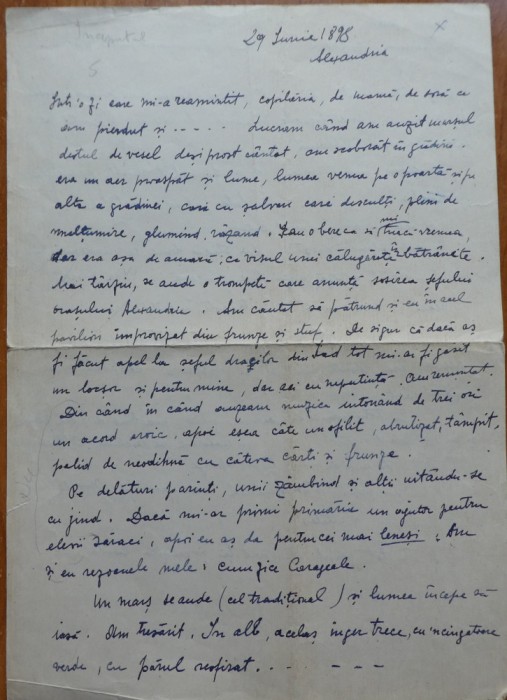 Începutul
5
x
29 Iunie 1898
Alexandria
Într'o zi care mi-a reamintit, copilăria, de mamă, de soră ce
am pierdut și - - - - - Lucram când am auzit marșul
destul de vesel deși prost cântat, am scoborât în grădină.
era un aer proaspăt și lume, lumea venea pe o poartă și pe
alta a grădinei, care cu salvari care desculți, plini de
mulțumire, glumind, râzand. Iau o berea si mi
dar era așa de amară; ca visul unei călugărițe îmbătrânite.
Mai târziu, se aude o trompetă care anunță sosirea șefului
orașului Alexandria. Am căutat să pătrund și eu în acel
pavilion improvizat din frunze și stuf. De sigur că dacă aș
fi făcut apel la șeful dracilor din Iad tot mi-ar fi gasit
un locșor și pentru mine, dar aci cu neputință.
Din când în când auzeam muzica intonând de trei ori
un acord eroic, apoi eșea câte un ofilit, abrutizat, tâmpit,
palid de neodihnă cu câteva cărți și frunze.
Pe delături parinti, unii zâmbind și alții uitându-se
cu jind. Dacă mi-ar primi primăria un ajutor pentru
elevii săraci, apoi eu aș da pentru cei mai leneși. Am
și eu rezoanele mele; cum zice Carageale.
Un marș se aude (cel tradițional) și lumea începe să
iasă. Am tresărit. In alb, acelaș inger trece, cu 'ncingatoare
verde, cu părul resfirat. . . - - -